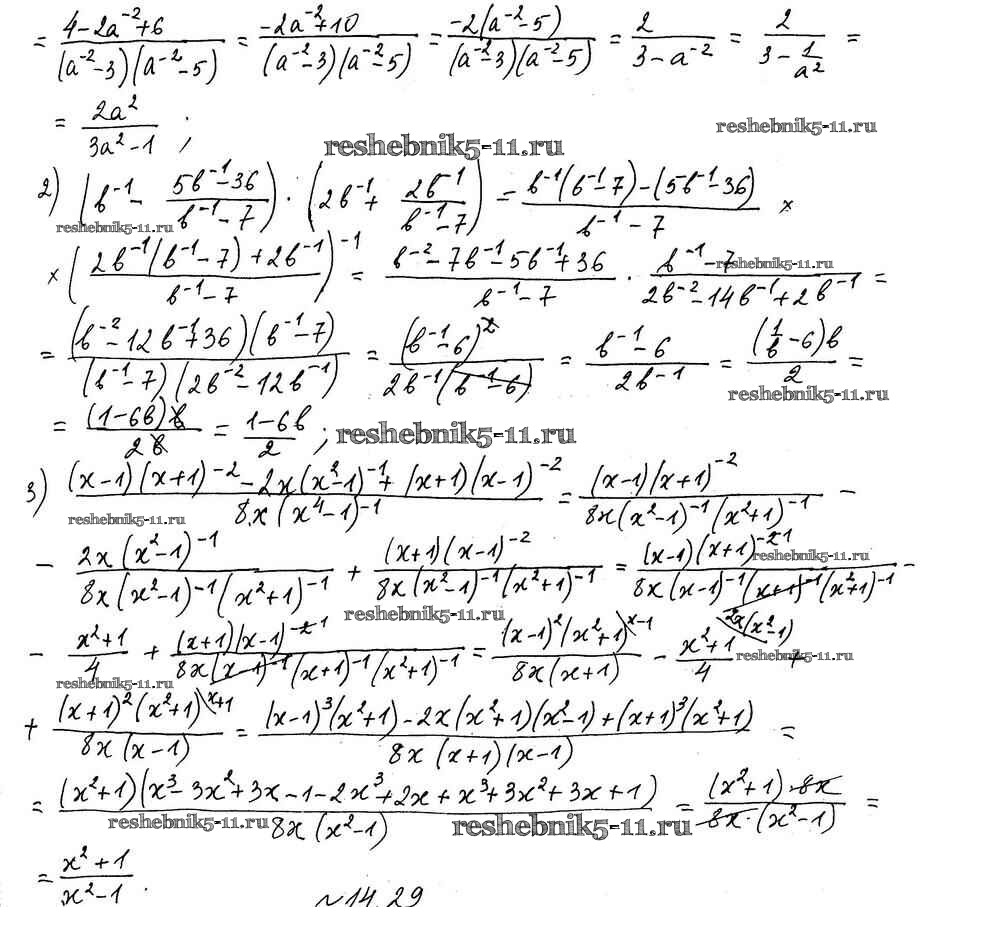 = (4-2a⁻²+6)/((a⁻²-3)(a⁻²-5)) = (-2a⁻²+10)/((a⁻²-3)(a⁻²-5)) = (-2(a⁻²-5))/((a⁻²-3)(a⁻²-5)) = 2/(3-a⁻²) = 2/(3-1/a²) =
= 2a²/(3a²-1) ;
reshebnik5-11.ru
reshebnik5-11.ru
2) (b⁻¹ - (5b⁻¹-36)/(b⁻¹-7)) · (2b⁻¹ + 2b⁻¹/(b⁻¹-7)) = (b⁻¹(b⁻¹-7)-(5b⁻¹-36))/(b⁻¹-7) ×
reshebnik5-11.ru
× ((2b⁻¹(b⁻¹-7)+2b⁻¹)/(b⁻¹-7))⁻¹ = (b⁻²-7b⁻¹-5b⁻¹+36)/(b⁻¹-7) · (b⁻¹-7)/(2b⁻²-14b⁻¹+2b⁻¹) =
reshebnik5-11.ru
= ((b⁻²-12b⁻¹+36)(b⁻¹-7))/((b⁻¹-7)(2b⁻²-12b⁻¹)) = (b⁻¹-6)²/(2b⁻¹(b⁻¹-6)) = (b⁻¹-6)/(2b⁻¹) = ((1/b-6)b)/2 =
reshebnik5-11.ru
= ((1-6b)b)/(2b) = (1-6b)/2 ;
reshebnik5-11.ru
3) ((x-1)(x+1)⁻²-2x(x²-1)⁻¹+(x+1)(x-1)⁻²)/(8x(x⁴-1)⁻¹) = ((x-1)(x+1)⁻²)/(8x(x²-1)⁻¹(x²+1)⁻¹) -
reshebnik5-11.ru
- (2x(x²-1)⁻¹)/(8x(x²-1)⁻¹(x²+1)⁻¹) + ((x+1)(x-1)⁻²)/(8x(x²-1)⁻¹(x²+1)⁻¹) = ((x-1)(x+1)⁻²¹)/(8x(x-1)⁻¹(x+1)⁻¹(x²+1)⁻¹) -
reshebnik5-11.ru
reshebnik5-11.ru
- (x²+1)/4 + ((x+1)(x-1)⁻²¹)/(8x(x-1)⁻¹(x+1)⁻¹(x²+1)⁻¹) = ((x-1)²(x²+1)\x-1)/(8x(x+1)) - (x²+1\2x(x²-1))/4 +
reshebnik5-11.ru
reshebnik5-11.ru
+ ((x+1)²(x²+1)\x+1)/(8x(x-1)) = ((x-1)³(x²+1)-2x(x²+1)(x²-1)+(x+1)³(x²+1))/(8x(x+1)(x-1)) =
= ((x²+1)(x³-3x²+3x-1-2x³+2x+x³+3x²+3x+1))/(8x(x²-1)) = ((x²+1)·8x)/(8x·(x²-1)) =
reshebnik5-11.ru
reshebnik5-11.ru
= (x²+1)/(x²-1) .
№14.29